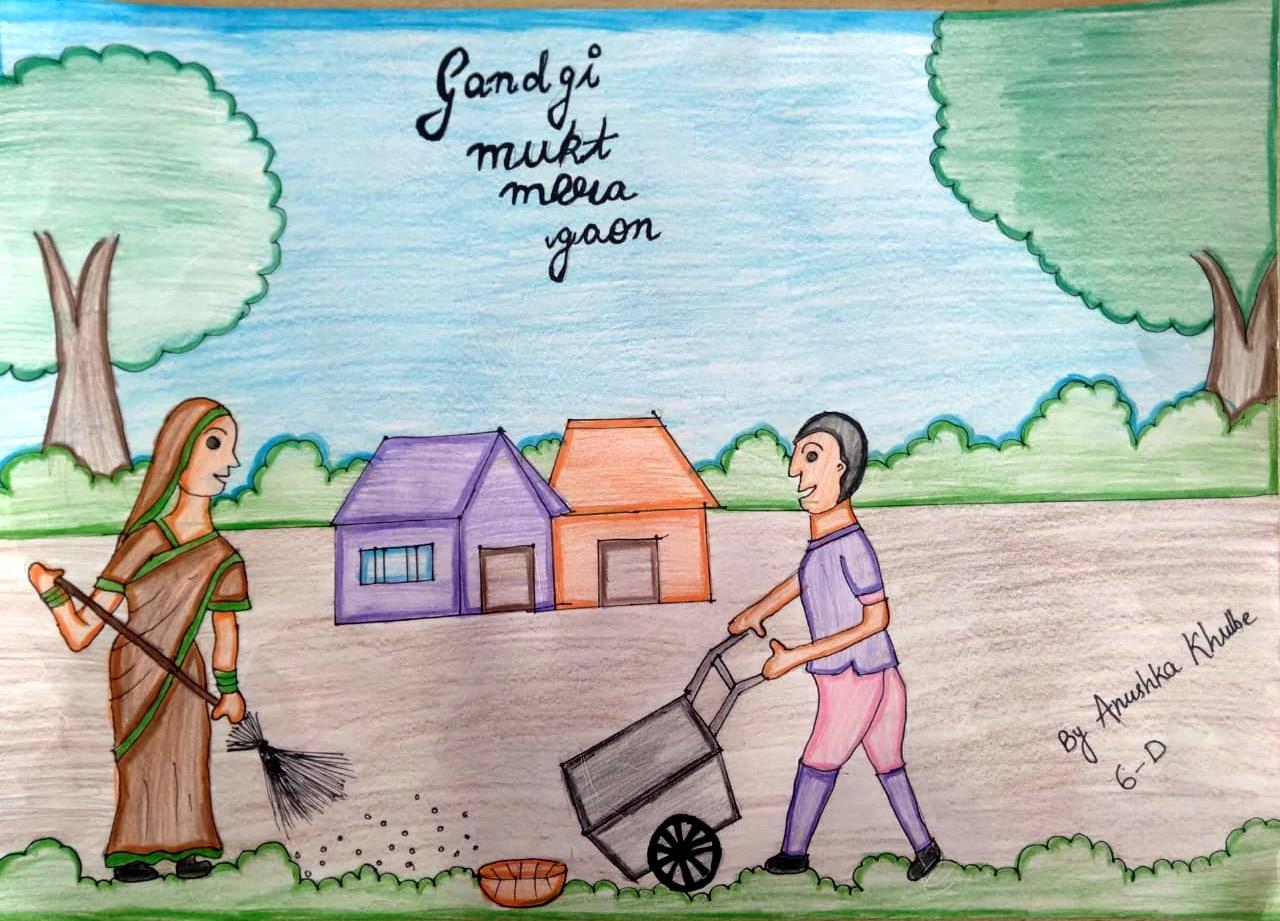 Gandgi
mukt
meera
gaon
By Anushka Khulbe
6-D